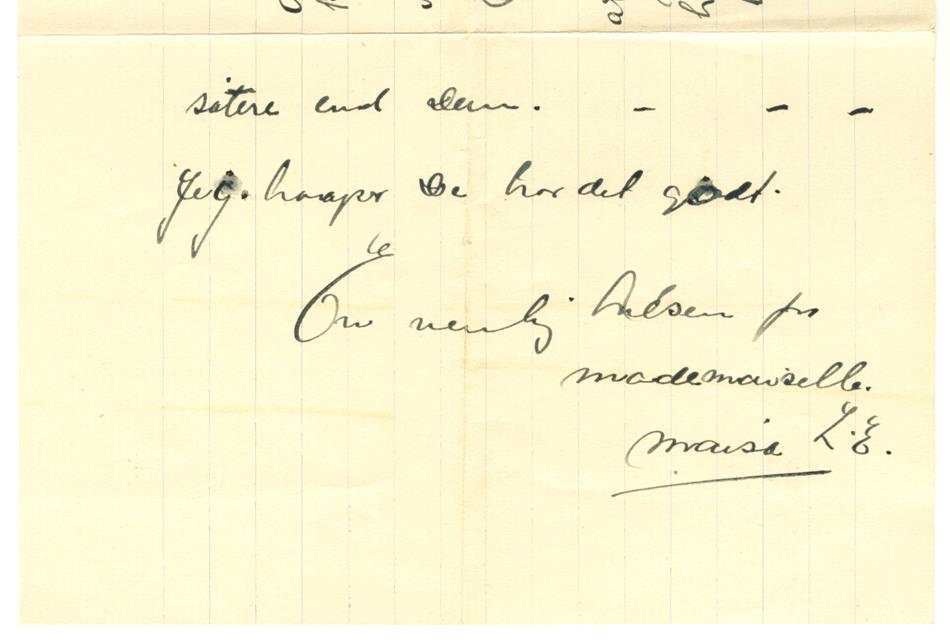 søtere end Dem. - - -
Jeg. haaper De har det godt.
En venlig hilsen fra
mademoiselle.
Maisa L.E.